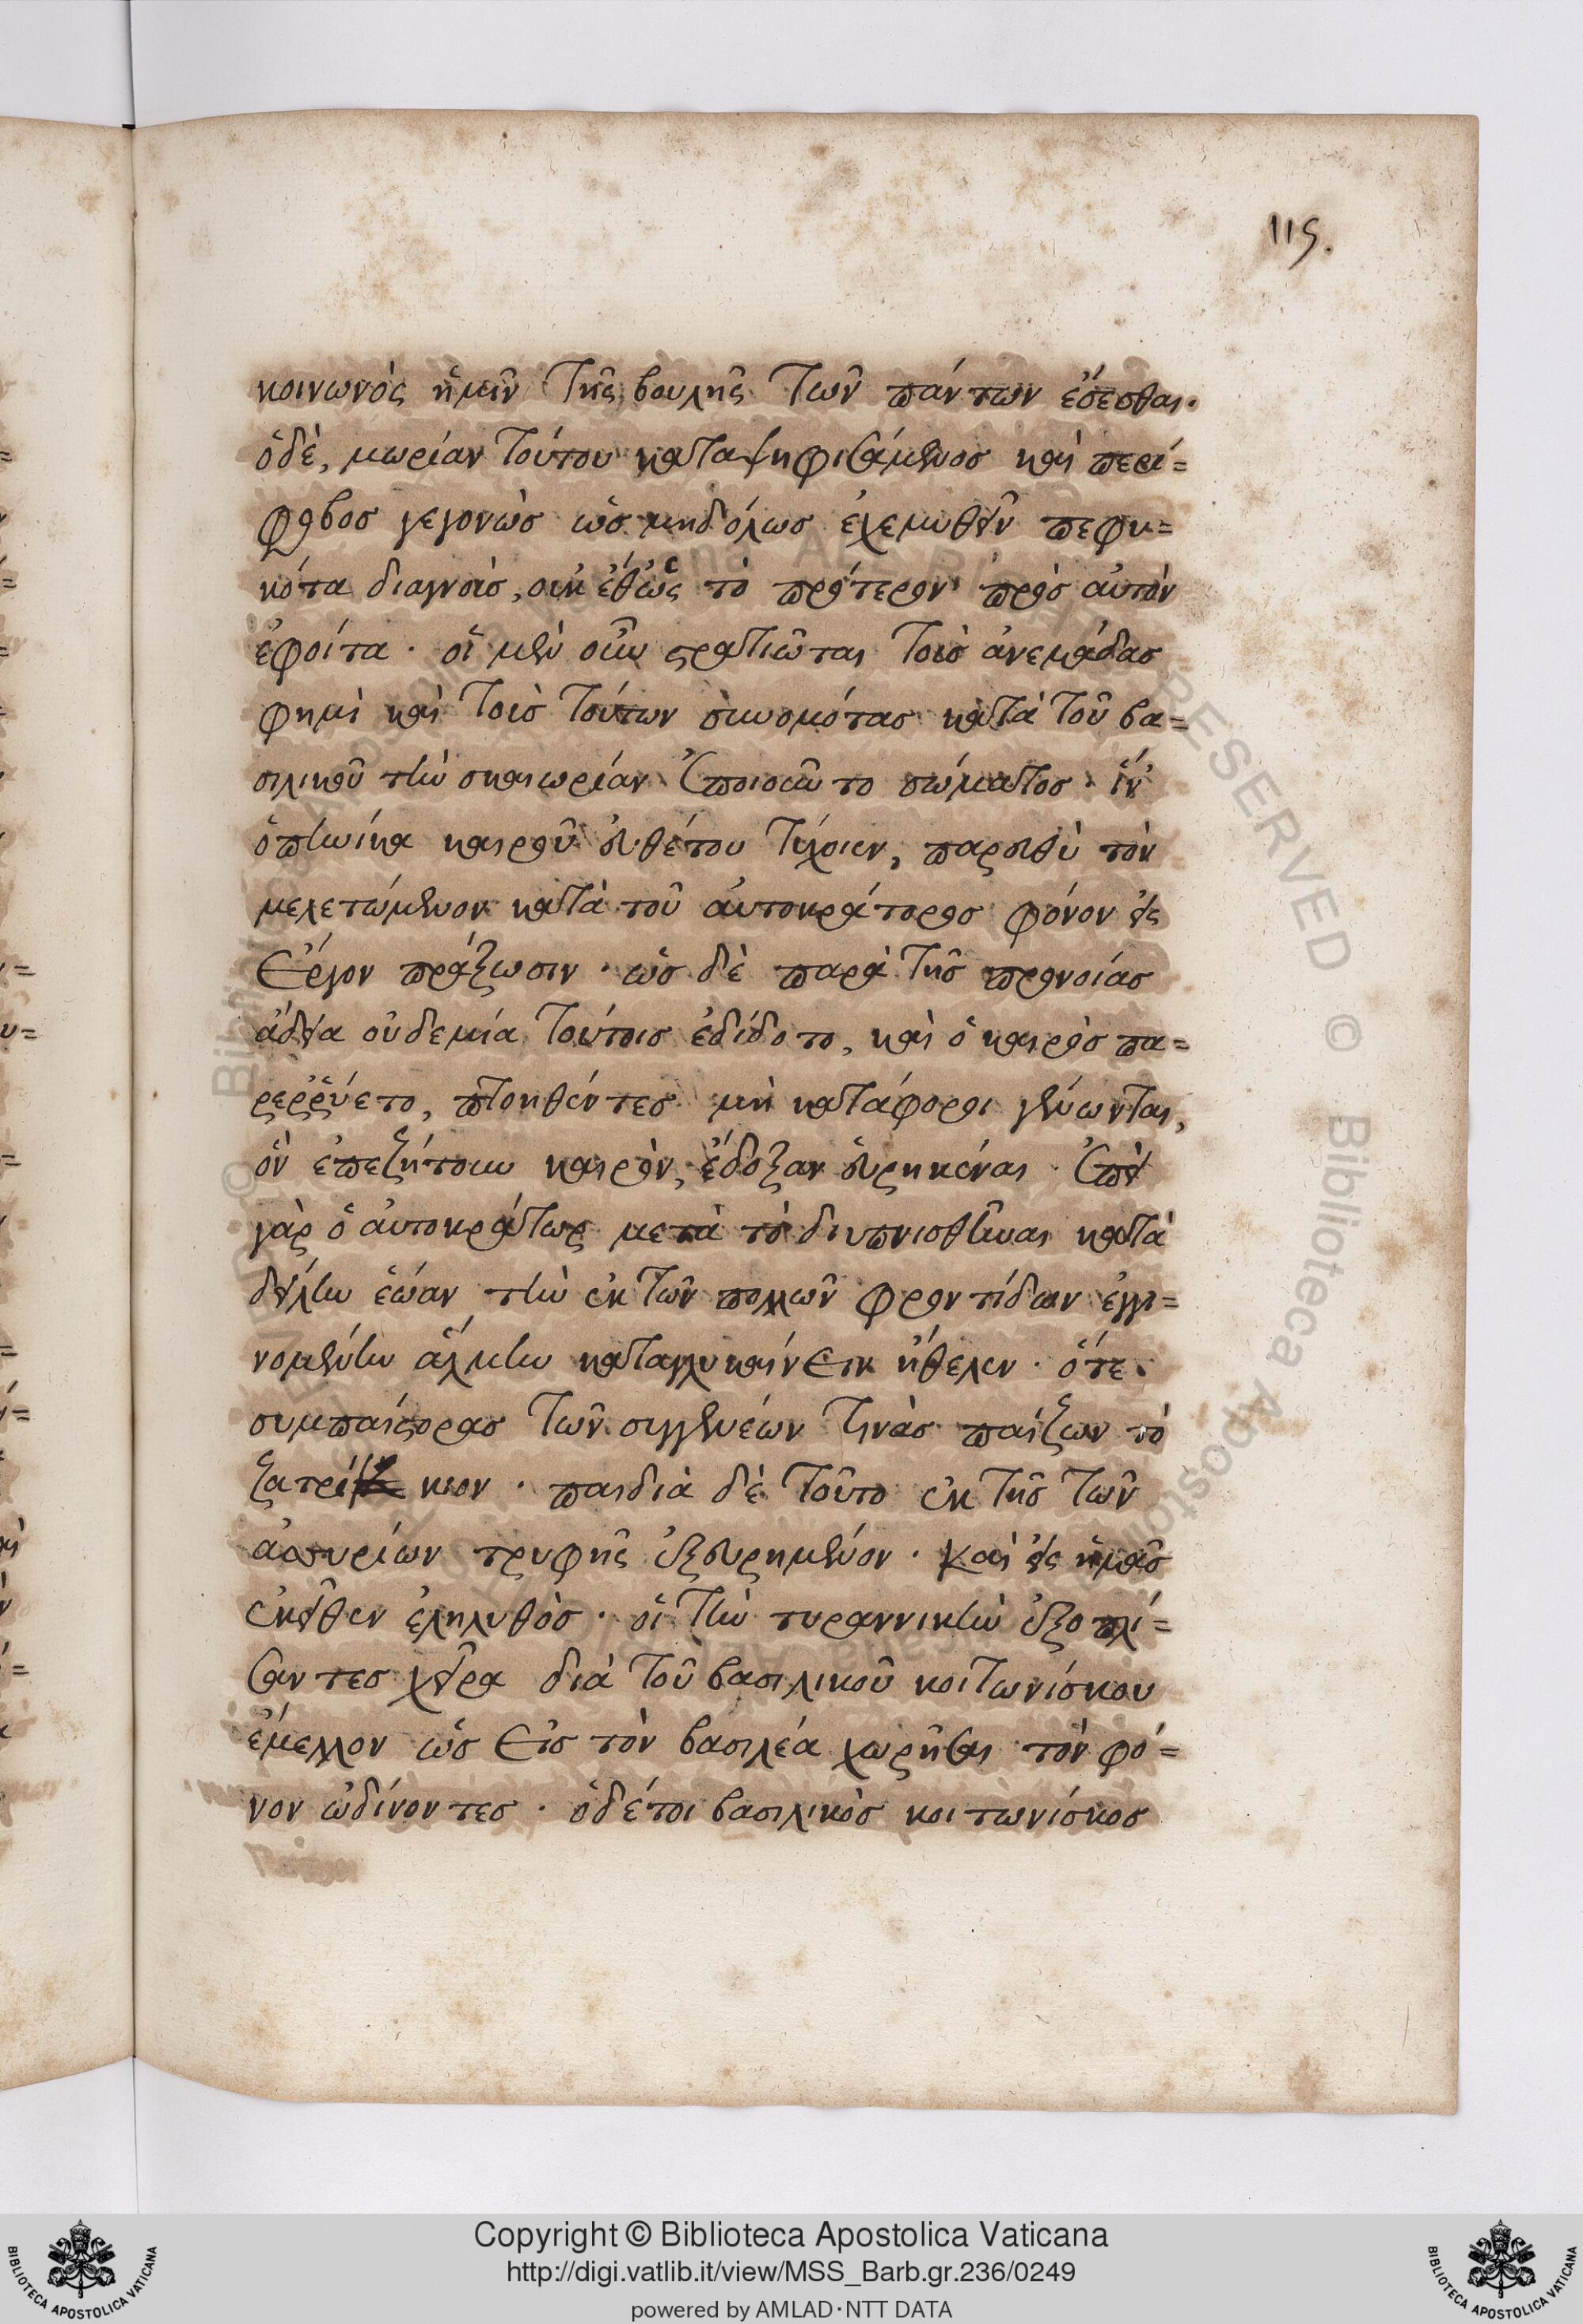 115.
κοινωνὸς ἡμῖν τῆς βουλῆς τῶν πάντων ἔσεσθαι.
ὁδὲ, μωρίαν τούτου καταψηφισάμενος καὶ περί=
φοβος γεγονὼς ὡς μηδόλως ἐχεμυθεῖν πεφυ=
κότα διαγνοὺς, οὐκ εἰθὼς τὸ πρότερον πρὸς αὐτὸν
ἐφοίτα · οἱ μὲν οὖν στρατιῶται τοὺς ἀνεμάδας
φημὶ καὶ τοὺς τούτων συνομότας κατὰ τοῦ βα=
σιλικοῦ τὴν σκαιωρίαν ἐποιοῦντο σώματος · ἵν'
ὁπηνίκα καιροῦ εὐθέτου τύχοιεν, παρευθὺ τὸν
μελετώμενον κατὰ τοῦ αὐτοκράτορος φόνον εἰς
ἔργον πράξωσιν · ὡς δὲ παρὰ τῆς προνοίας
ἄδεια οὐδεμία τούτοις ἐδίδοτο, καὶ ὁ καιρὸς πα=
ρερρύετο, πτοηθέντες μὴ κατάφοροι γένωνται,
ὃν ἐπεζήτουν καιρὸν, ἔδοξαν εὑρηκέναι · ἐπεὶ
γὰρ ὁ αὐτοκράτωρ μετὰ τὸ διυπνισθῆναι κατὰ
δείλην ἑώαν τὴν ἐκ τῶν πολλῶν φροντίδων ἐγγι=
νομένην ἅλμην καταγλυκαίνειν ἤθελεν · ὅτε
συμπαίστορας τῶν συγγενέων τινὰς παίζων τὸ
ζατρίκιον · παιδιὰ δὲ τοῦτο ἐκ τῆς τῶν
ἀσσυρίων τρυφῆς ἐξευρημένον · καὶ εἰς ἡμᾶς
ἐκεῖθεν ἐληλυθὸς · οἱ τὴν τυραννικὴν ἐξοπλί=
σαντες χεῖρα διὰ τοῦ βασιλικοῦ κοιτωνίσκου
ἔμελλον ὡς εἰς τὸν βασιλέα χωρῆσαι τὸν φό=
νον ὠδίνοντες · ὁδέτοι βασιλικὸς κοιτωνίσκος
Copyright © Biblioteca Apostolica Vaticana
http://digi.vatlib.it/view/MSS_Barb.gr.236/0249
powered by AMLAD·NTT DATA